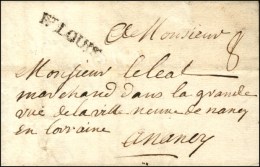 Ft LOUIS
A Monsieur
8
Monsieur Leleal
marchand dans la grande
rue de la ville neuve de nancy
en lorraine
a nancy